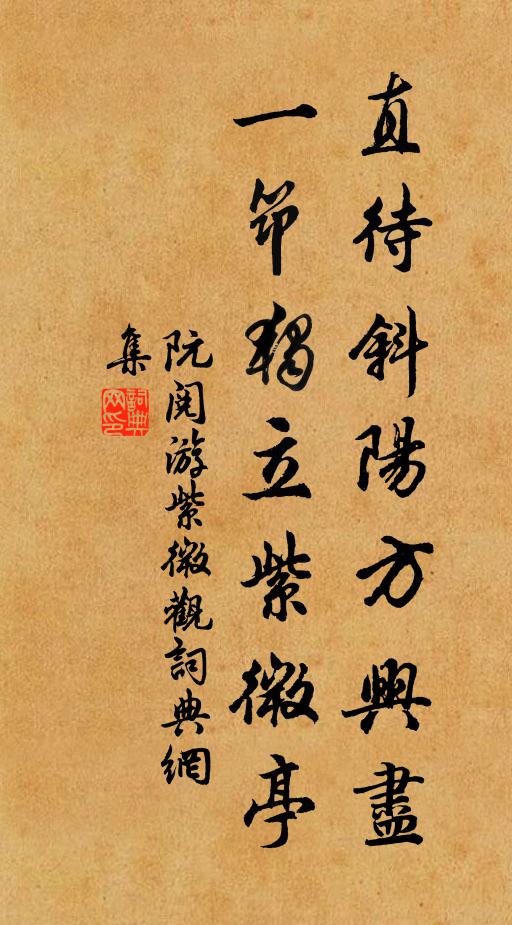 直待斜陽方興盡
一筇獨立紫微亭
阮閱游紫微觀詞典網
集
詞典
网印